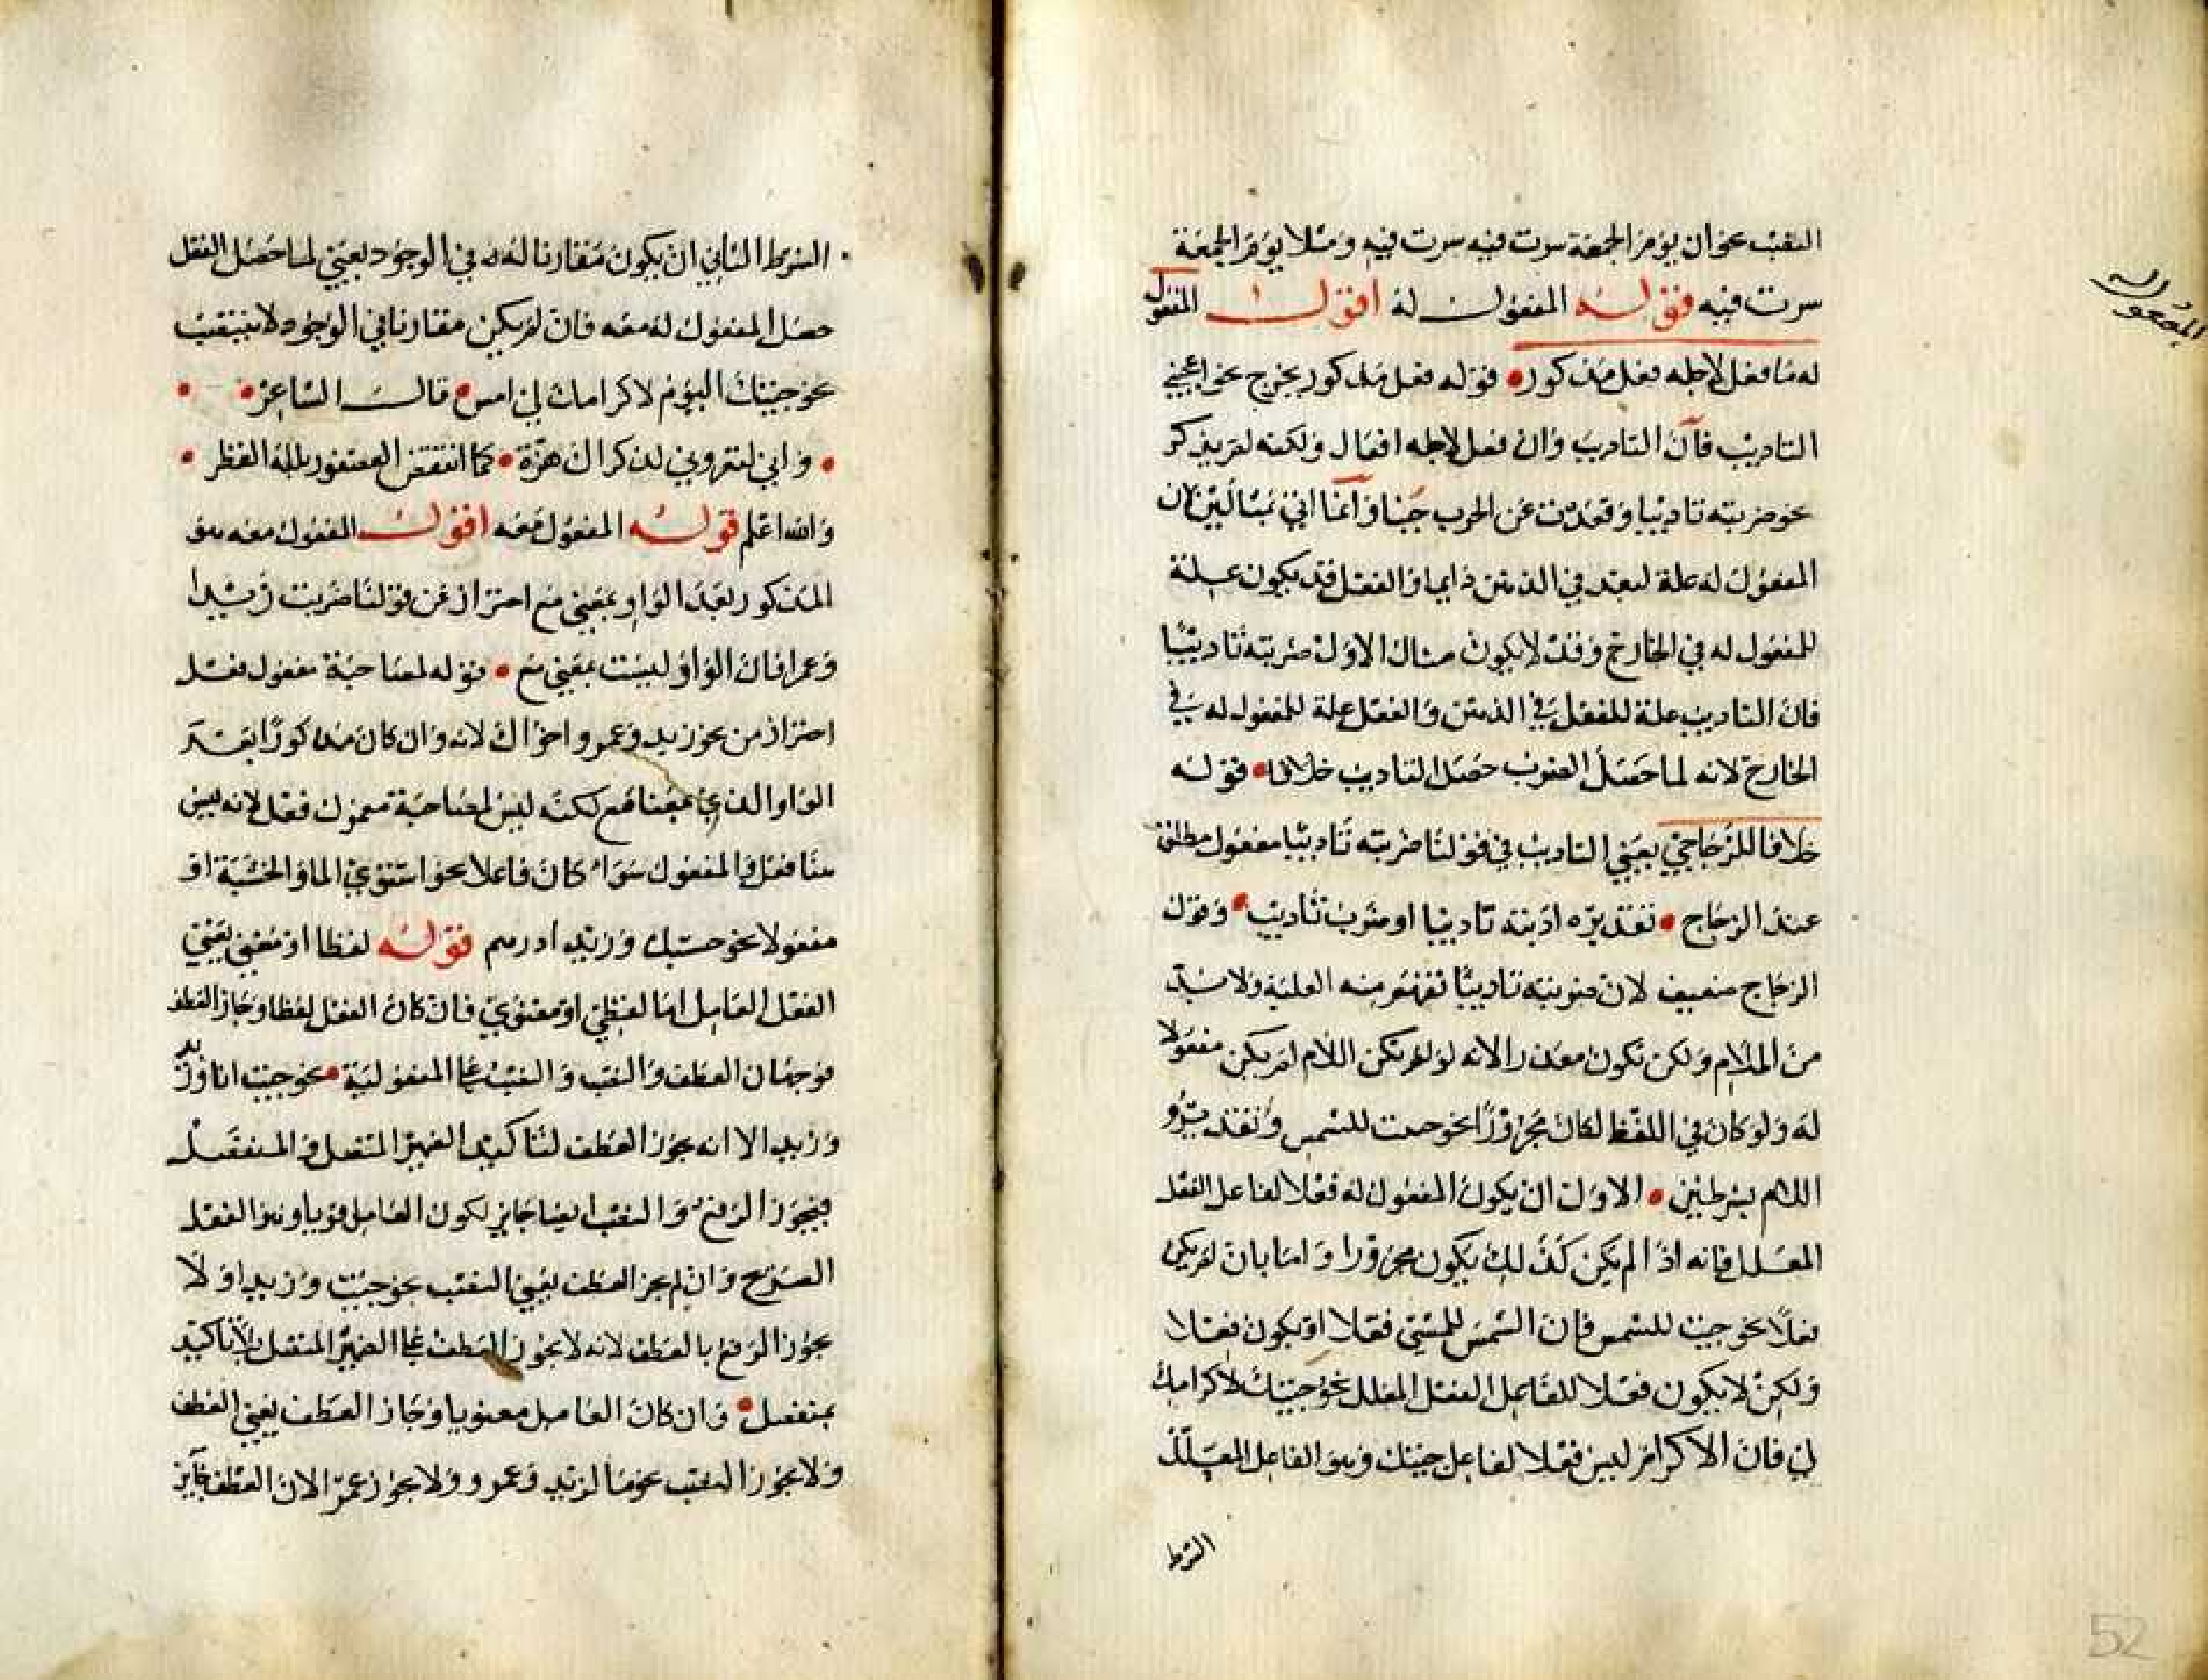 النصب نحو ان يوم الجمعة سرت فيه سرت فيه ومثلا يوم الجمعة
سرت فيه قوله المفعول له اقول المفعول
له ما فعل لاجله فعل مذكور قوله فعل مذكور يخرج نحو اعجبني
التاديب فان التاديب وان فعل لاجله افعال ولكنه لم يذكر
نحو ضربته تاديبا وقعدت عن الحرب جبنا وانما اتى بمثالين لان
المفعول له علة لبعد في الذهن دايما والفعل قد يكون علة
للمفعول له في الخارج وقد لا يكون مثال الاول ضربته تاديبا
فان التاديب علة للفعل في الذهن والفعل علة للمفعول له في
الخارج لانه لما حصل الضرب حصل التاديب خلافا قوله
خلافا للزجاجي يعني التاديب في قولنا ضربته تاديبا مفعول مطلق
عند الزجاج تقديره ادبته تاديبا او ضرب تاديب وقول
الزجاج ضعيف لان ضربته تاديبا تفهم منه العلية ولا بد
من اللام ولكن تكون مقدرا لانه لو لم تكن اللام لم يكن مفعولا
له ولو كان في اللفظ لكان مجرورا نحو جيت للسمن وتقديره
اللام بشرطين الاول ان يكون المفعول له فعلا لفاعل الفعل
المعلل فانه اذا لم يكن كذلك يكون مجرورا واما بان لم يكن
فعلا نحو جيت للسمن فان السمن للمشتى فعلا او يكون فعلا
ولكن لا يكون فعلا للفاعل الفعل المعلل نحو جيتك لاكرامك
لي فان الاكرام ليس فعلا لفاعل جيتك وهو الفاعل المعلل
الشرط
المفعول له
52
الشرط الثاني ان يكون مقارنا له في الوجود يعني لما حصل الفعل
حصل المفعول له معه فان لم يكن مقارنا في الوجود لا ينتصب
نحو جيتك اليوم لاكرامك لي امس قال الشاعر
واني لتعروني لذكراك هزة كما انتفض العصفور بلله القطر
والله اعلم قوله المفعول معه اقول المفعول معه هو
المذكور بعد الواو بمعنى مع احتراز عن قولنا ضربت زيدا
وعمرا فان الواو ليست بمعنى مع قوله لمصاحبة معمول فعل
احتراز من نحو زيد وعمرو اخواك لانه وان كان مذكورا بعد
الواو الذي بمعنا مع لكنه ليس لمصاحبة معمول فعل لانه ليس
هنا فعل والمفعول سواء كان فاعلا نحو استوى الما والخشبة او
مفعولا نحو حسبك وزيدا درهم قوله لفظا او معنى يعني
الفعل العامل اما لفظي او معنوي فان كان الفعل لفظا وجاز العطف
فوجهان العطف والنصب والنصب على المفعولية نحو جيت انا وزيد
وزيدا الا انه جوز العطف لتاكيد الضمير المتصل والمنفصل
فيجوز الرفع والنصب ايضا جايز لكون العامل قويا وهو الفعل
الصريح وان لم يجز العطف تعين النصب نحو جيت وزيدا ولا
يجوز الرفع بالعطف لانه لا يجوز العطف على الضمير المتصل بلا تاكيد
بمنفصل وان كان العامل معنويا وجاز العطف تعين العطف
ولا يجوز النصب نحو ما لزيد وعمرو ولا يجوز عمرا لان العطف جايز